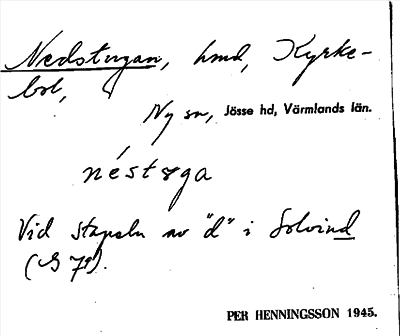 Nedstugan, hmd, Kyrke-
bol,
Ny sn, Jösse hd, Värmlands län.
néstꞷga
Vid stapeln av "d" i Solvind
(S 79).
PER HENNINGSSON 1945.